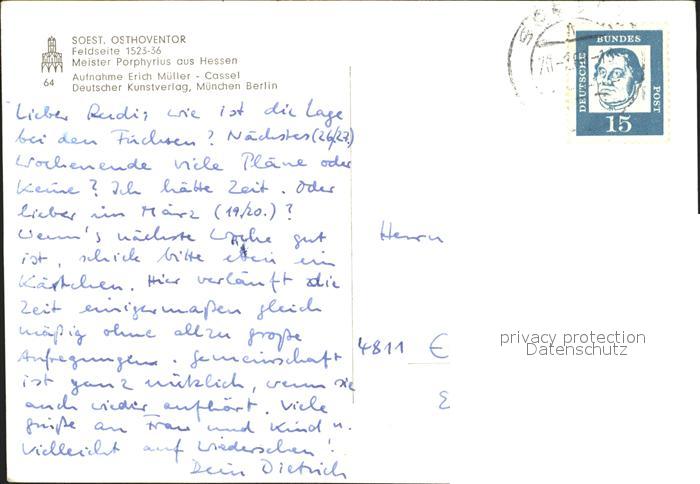 SOEST. OSTHOVENTOR
Feldseite 1523-36
Meister Porphyrius aus Hessen
64
Aufnahme Erich Müller - Cassel
Deutscher Kunstverlag, München Berlin
DEUTSCHE BUNDES POST
15
Lieber Rudi, wie ist die Lage
bei den Füchsen? Nächstes (26/27.)
Wochenende viele Pläne oder
keine? Ich hätte Zeit. Oder
lieber im März (19/20.)?
Wenn's nächste Woche gut
ist, schick bitte eben ein
Kärtchen. Hier verläuft die
Zeit einigermaßen gleich
mäßig ohne allzu große
Aufregungen. Gemeinschaft
ist ganz nützlich, wenn sie
auch wieder aufhört. Viele
Grüße an Frau und Kind u.
vielleicht auf Wiedersehen!
Dein Dietrich
Herrn
4811
privacy protection
Datenschutz